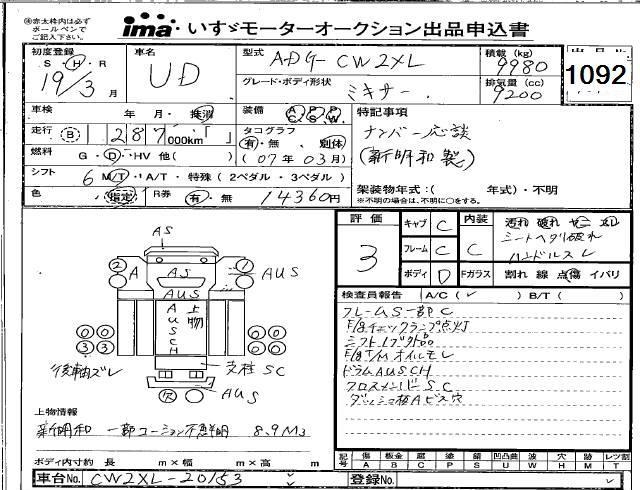 ㊟赤太枠内は必ず
ボールペンで
ご記入下さい。
ima いすゞモーターオークション出品申込書
初度登録 S・H・R 19/3月
車名 UD
型式 ADG-CW2XL
グレード・ボディ形状 ミキサー
積載(kg) 9980
排気量(cc) 9200
1092
車検 年・月・抹消
装備
特記事項
ナンバー応談
(新明和製)
走行 B 1 287 000km「 」
タコグラフ 有・無 別体
(07年03月)
燃料 G・D・HV 他( )
シフト 6 M/T・A/T・特殊(2ペダル・3ペダル)
色 指定 R券 有・無 14360円
架装物年式:( 年式)・不明
※不明の場合は、不明に○をする。
評価 3
キャブ C
フレーム C
ボディ D
内装 C
Fガラス
汚れ 破れ ヤニ スレ
シートヘタリ破れ
ハンドルスレ
割れ 線 点傷 イバリ
検査員報告 A/C(✓) B/T( )
フレームS一部C
F/Sチェックランプ点灯
シフトノブ外品
F/S T/Mオイルモレ
ドラムAUSCH
クロスメンバーSC
ダッシュ板Aビス穴
AS
2 A 1 AUS
AS
AUS
AUSCH
上物
00 00
33 33
後軸ズレ
支柱SC
AUS
上物情報
新明和 一部コーション不鮮明 8.9M3
ボディ内寸約 長 m×幅 m×高 m
記号 傷A 板金B 腐C 塗P 錆S 凹凸曲U 波W 欠H 穴 跡M レツ割T
車台No. CW2XL-20153
登録No.